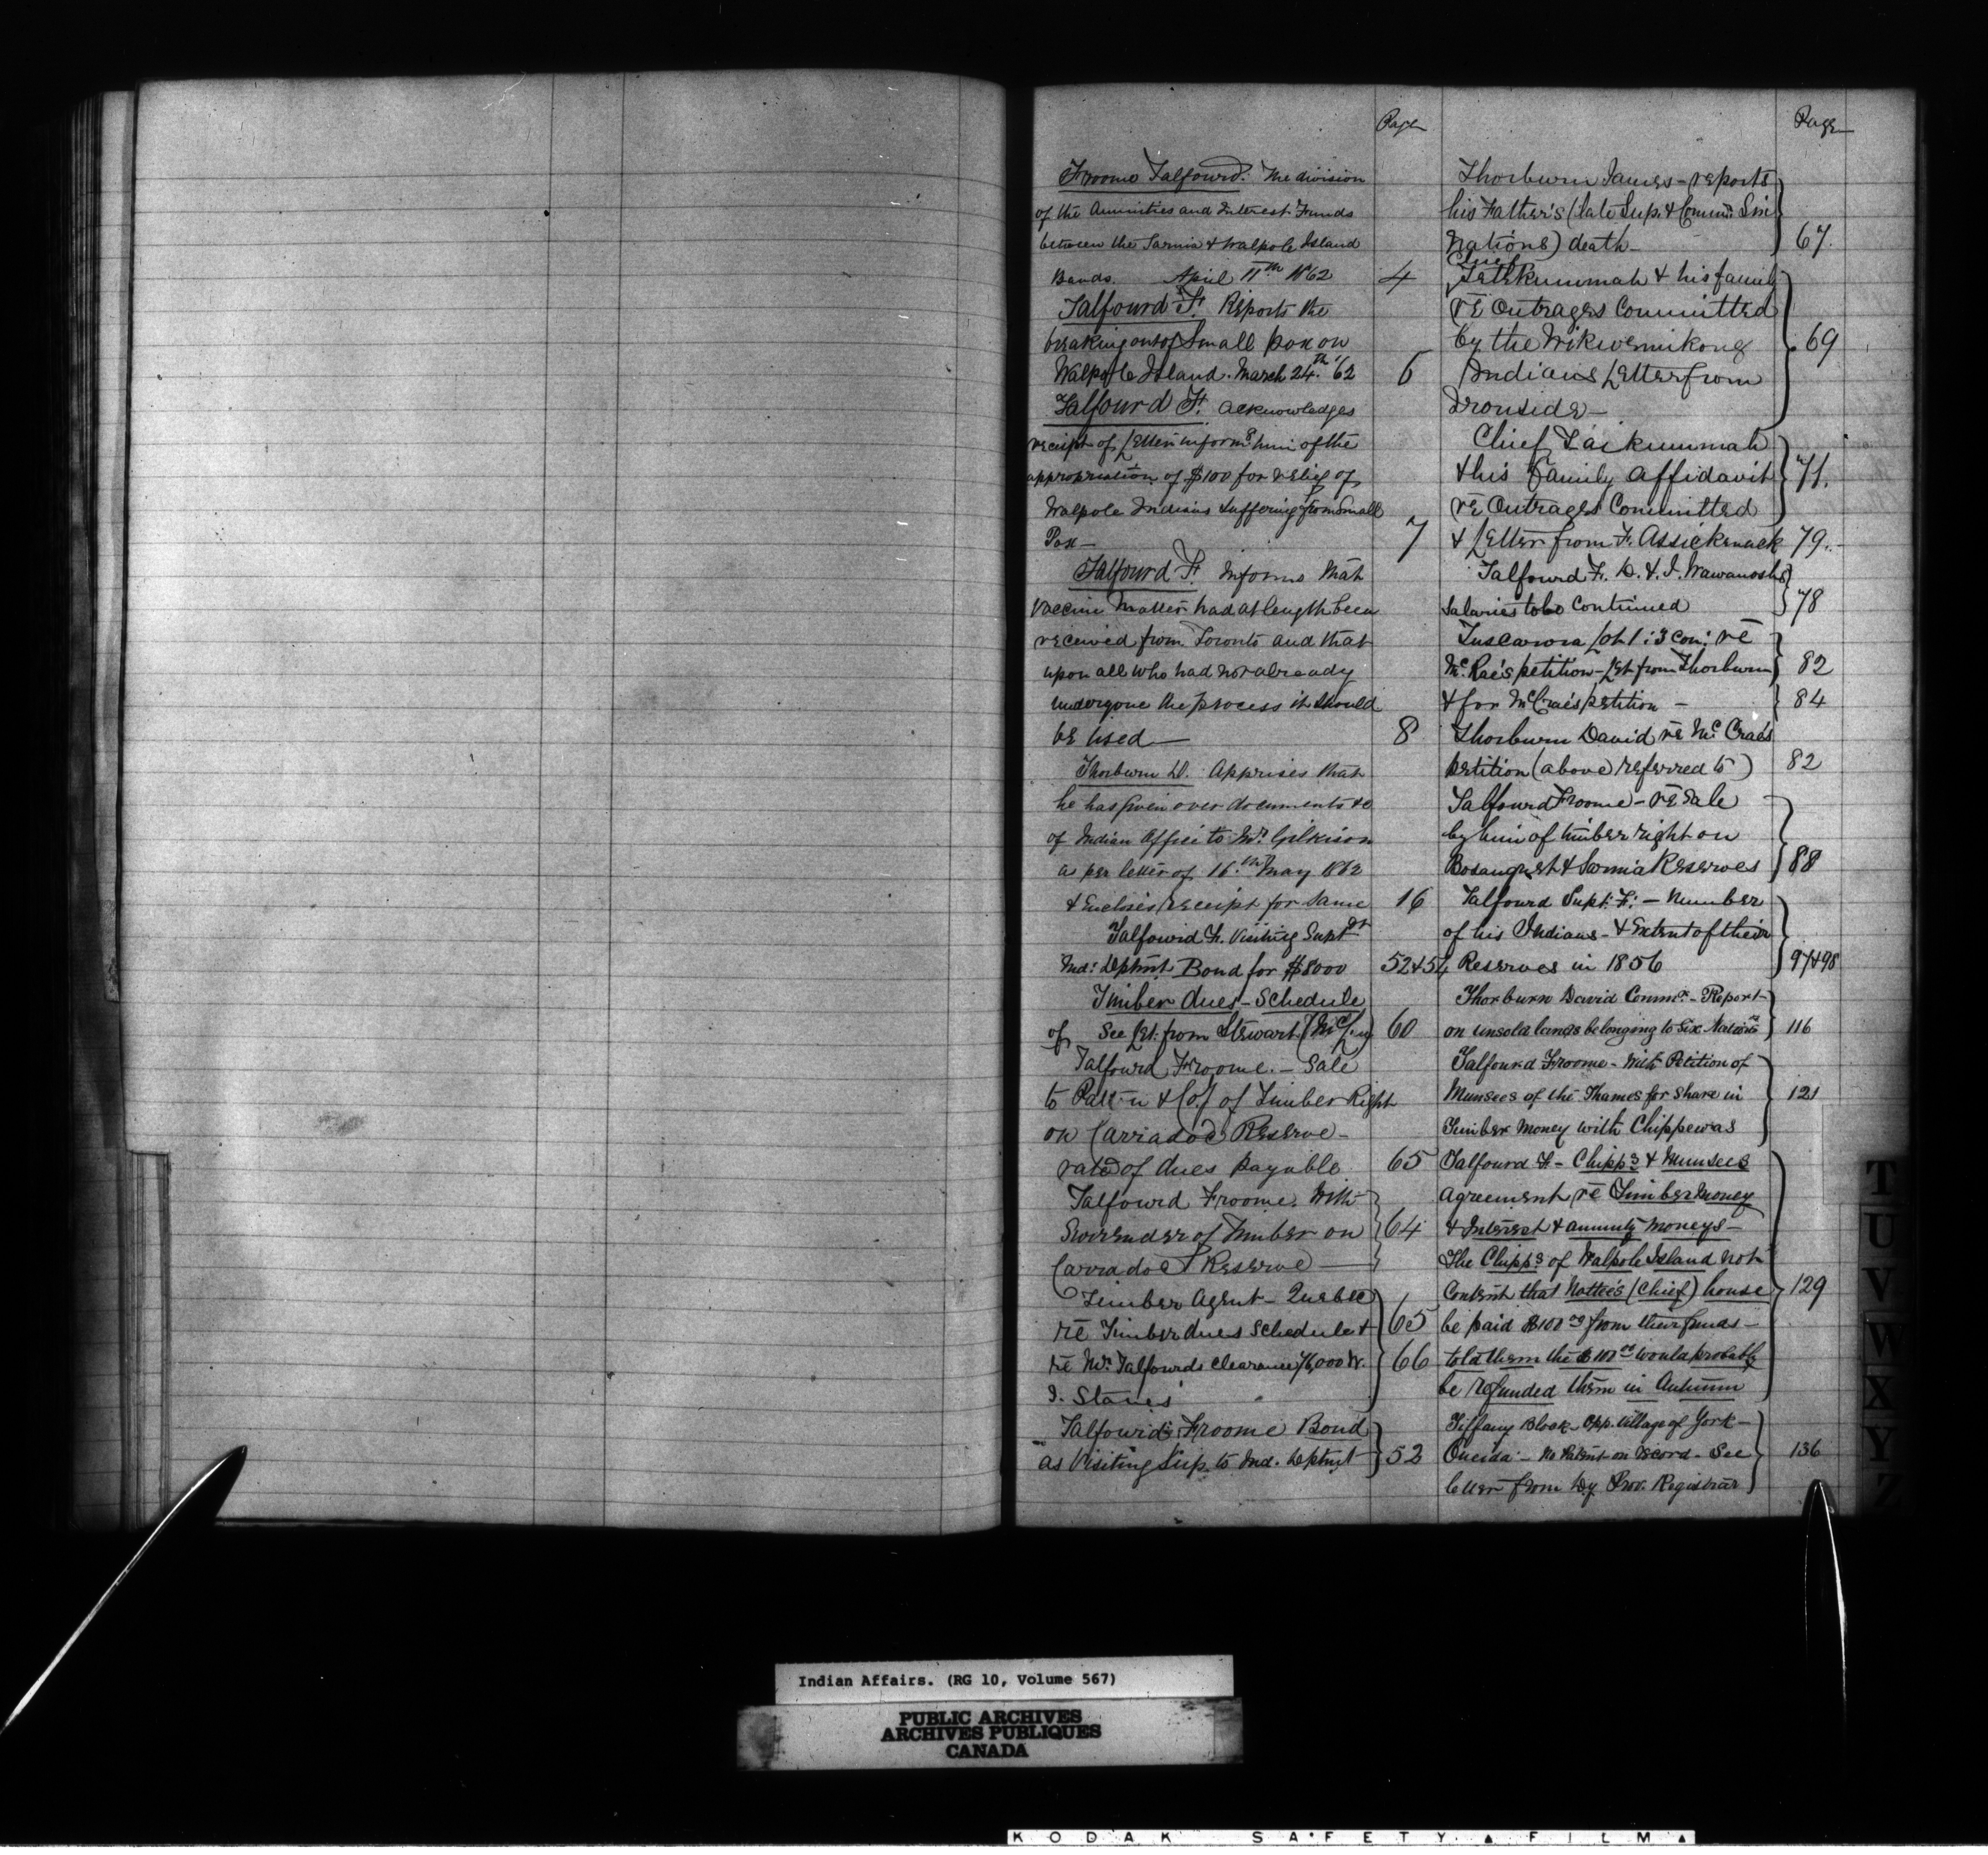 Page
Froome Talfourd. The division
of the Annuities and Interest Funds
between the Sarnia & Walpole Island
Bands. April 11th 1862 4
Talfourd F. Reports the
breaking out of Small pox on
Walpole Island. March 24th '62 6
Talfourd F. acknowledges
receipt of Letter informg him of the
appropriation of $100 for relief of
Walpole Indians suffering from Small
Pox — 7
Talfourd F. informs that
Vaccine Matter had at length been
received from Toronto and that
upon all who had not already
undergone the process it should
be used — 8
Thorburn D. Apprises that
he has given over documents &c
of Indian Office to Mr. Gilkison
as per letter of 16th May 1862
& Encloses receipt for same 16
Talfourd F. Visiting Supt
Ind: Deptmt Bond for $8000 52 & 54
Timber dues - Schedule
of See Let. from Stewart 60
Talfourd Froome. - Sale
to & Co. of Timber Right
on Carradoc Reserve -
rate of dues payable 65
Talfourd Froome. With
Surrender of Timber on 64
Carradoc Reserve —
Timber Agent - Quebec
re Timber dues schedule & 65
re Mr. Talfourds clearance 7/6,000 W. 66
I. Staves
Talfourd Froome Bond
as Visiting Sup. to Ind. Deptmt 52
Page
Thorburn James - reports
his Father's (late Sup. & Commr. Six
Nations) death - 67.
Chief
Tatekummah & his family
re Outrages Committed
by the Wikwemikong 69
Indians Letter from
Ironside -
Chief Taikummah
& his Family Affidavit 71.
re Outrages Committed
& Letter from F. Assickenack 79.
Talfourd F. D. & J. Wawanosh's
Salaries to be continued 78
Tuscarora Lot 1 : 3 con: re
McRae's petition - Let from Thorburn 82
& for McCrae's petition - 84
Thorburn David re McCrae's
petition (above referred to) 82
Talfourd Froome - re Sale
by him of timber right on
Bosanquet & Sarnia Reserves 88
Talfourd Supt. F: - Number
of his Indians - & Extent of their
Reserves in 1856 97 & 98
Thorburn David Commr. - Report
on unsold lands belonging to Six Nations 116
Talfourd Froome - With Petition of
Munsees of the Thames for share in 121
Timber Money with Chippewas
Talfourd F - Chipps & Munsees
agreement re Timber Money
& Interest & annuity moneys -
The Chipps of Walpole Island not
Content that Nottee's (Chief) house 129
be paid $100 00 from their funds -
told them the $100 00 would probably
be refunded them in Autumn
Tiffany Block - Opp. Village of York -
Oneida - No Patent on record - See 136
letter from Dy. Prov. Registrar
T
U
V
W
X
Y
Z
Indian Affairs. (RG 10, Volume 567)
PUBLIC ARCHIVES
ARCHIVES PUBLIQUES
CANADA
KODAK SAFETY FILM